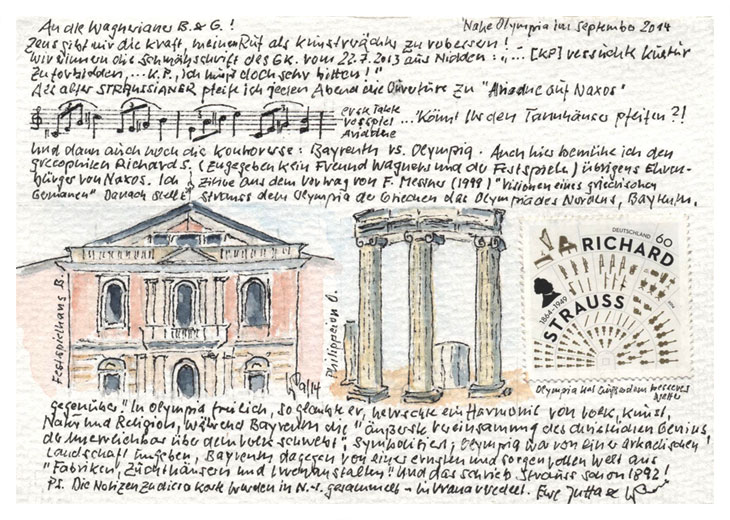 An die Wagnerianer B. & G.!
Nahe Olympia im September 2014
Zeus gibt mir die Kraft, meinen Ruf als Kunstverächter zu verbessern!
Wir erinnern die Schmähschrift des GK. vom 22.7.2013 aus Nidden: „... [KP] versuchte Kultur
zu verbieten, ... K.P., ich muß doch sehr bitten!"
Als alter STRAUSSIANER pfeife ich jeden Abend die Ouvertüre zu "Ariadne auf Naxos"
erste Takte
Vorspiel
Ariadne
... Könnt Ihr den Tannhäuser pfeifen?!
Und dann auch noch die Kontroverse: Bayreuth vs. Olympia. Auch hier bemühe ich den
grecophilen Richard S. (Zugegeben kein Freund Wagners und der Festspiele) übrigens Ehren-
bürger von Naxos. Ich zitiere aus dem Vortrag von F. Messner (1998) "Visionen eines griechischen
Germanen" Danach stellt Strauss dem Olympia der Griechen das Olympia des Nordens, Bayreuth,
Festspielhaus B.
Philippeion O.
9/14
DEUTSCHLAND 60
RICHARD
STRAUSS
1864-1949
Olympia hat außerdem besseres
Wetter
gegenüber." In Olympia freilich, so glaubte er, herrschte ein Harmonie von Volk, Kunst,
Natur und Religion, während Bayreuth die "äußerste Vereinsamung des christlichen Genius,
der unerreichbar über dem Volk schwebt", symbolisiert; Olympia war von einer arkadischen
Landschaft umgeben, Bayreuth dagegen von einer ernsten und sorgenvollen Welt aus
"Fabriken, Zuchthäusern und Irrenanstalten." Und das schrieb Strauss schon 1892!
PS. Die Notizen zu dieser Karte wurden in N.-S. gesammelt - in
Eure Jutta &